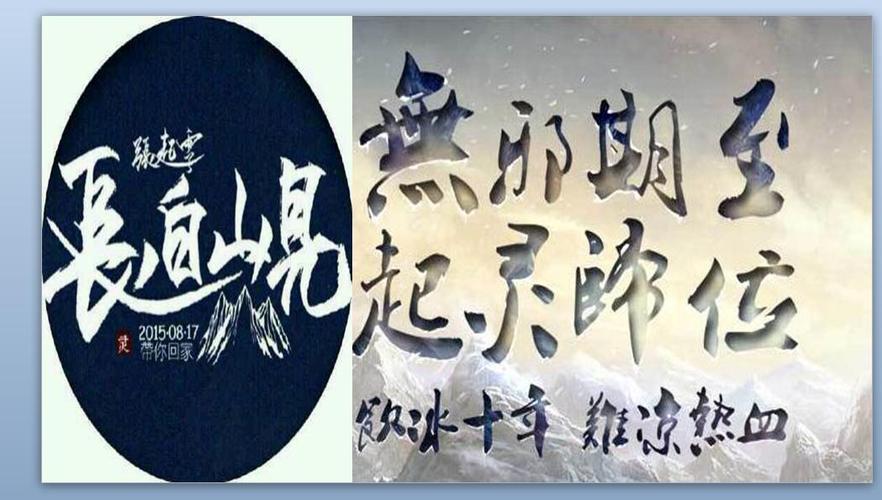 張起靈
長白山見
2015·08·17
帶你回家
無邪期至
起灵歸位
飲冰十年 難凉熱血